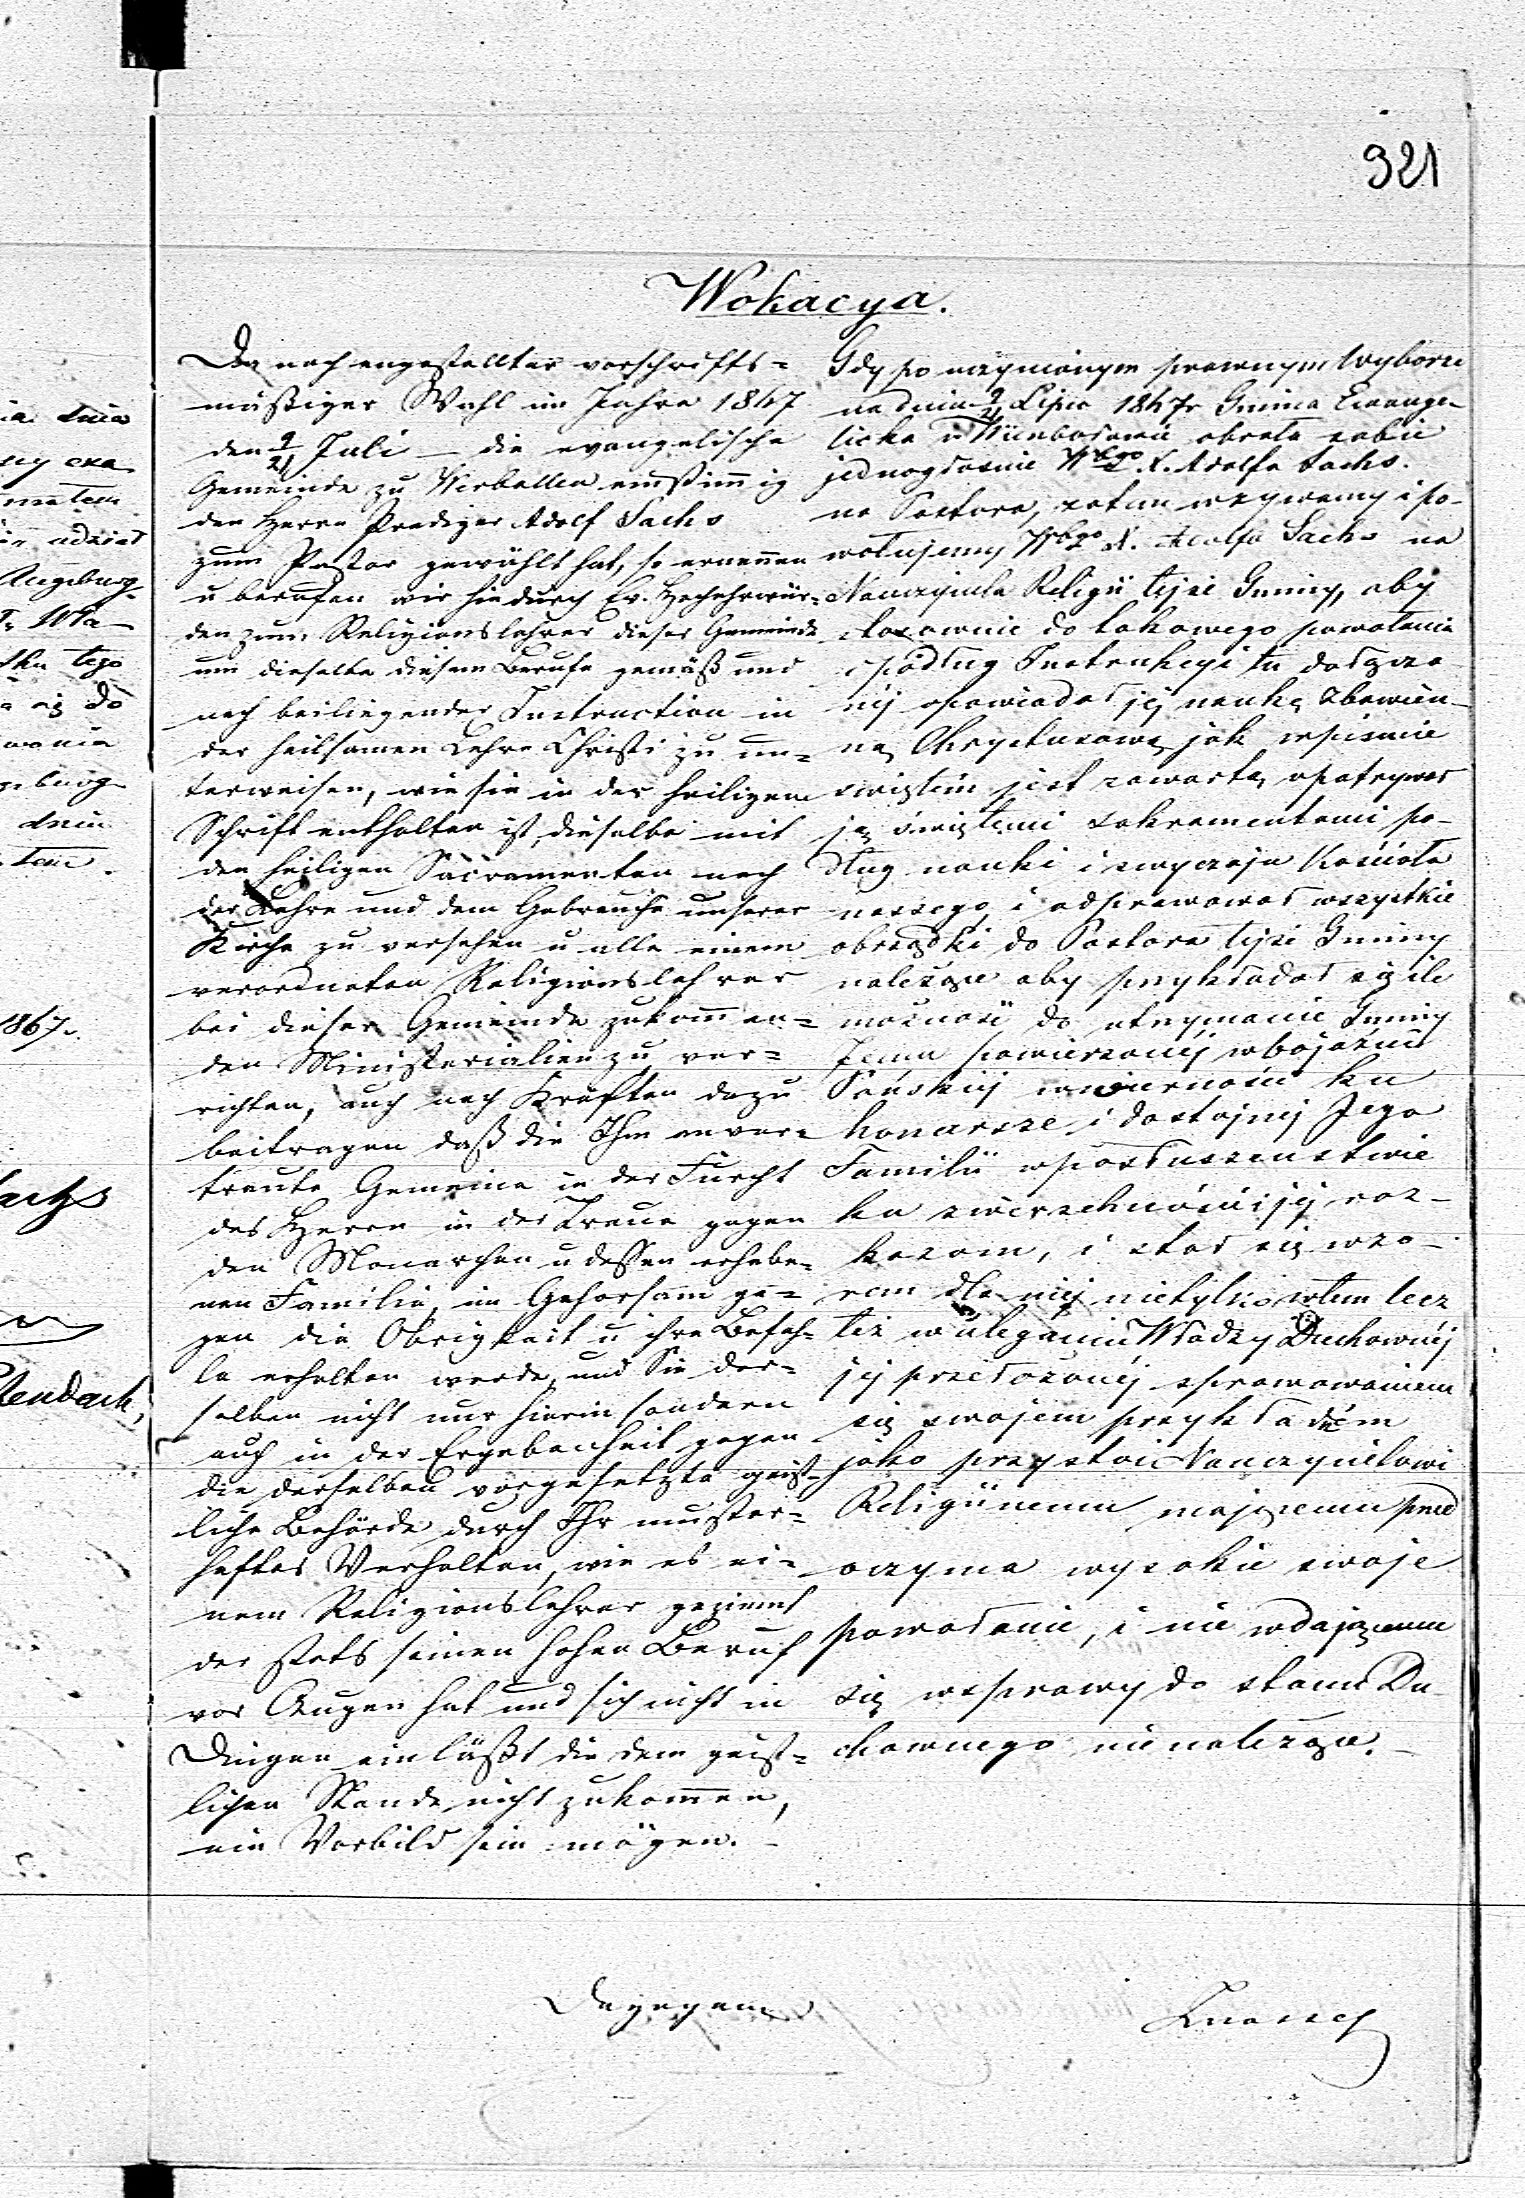 321
Wokacya.
Da nach angestellter vorschrifts=
mäßiger Wahl im Jahre 1847
den 9/21 Juli – die evangelische
Gemeinde zu Wirballen einstimmig
den Herrn Prediger Adolf Sachs
zum Pastor gewählt hat, so ernennen
u berufen wir hiedurch Ew. Hochehrwür=
den zum Religionslehrer dieser Gemeinde
um dieselbe diesem Berufe gemäß und
nach beiliegender Instruction in
der heilsamen Lehre Christi zu un=
terweisen, wie sie in der heiligen
Schrift enthalten ist, dieselbe mit
den heiligen Sacramenten nach
der Lehre und dem Gebrauche unserer
Kirche zu versehen u alle einem
verordneten Religionslehrer
bei dieser Gemeinde zukommen=
den Ministerialien zu ver=
richten, auch nach Kräften dazu
beitragen daß die Ihm anver=
traute Gemeine in der Furcht
des Herrn in der Treue gegen
den Monarchen u dessen erhabe=
nen Familie, im Gehorsam ge=
gen die Obrigkeit u ihre Befeh=
le erhalten werde, und Sie der=
selben nicht nur hierin sondern
auch in der Ergebenheit gegen
die derselben vorgesetzte geist=
liche Behörde durch Ihr muster=
haftes Verhalten, wie es ei=
nem Religionslehrer geziemt
der stets seinen hohen Beruf
vor Augen hat und sich nicht in
Dingen einläßt die dem geist=
lichen Stande nicht zukommen,
ein Vorbild sein mögen. –
Gdy po uczynionym prawnym Wyborze
na dniu 9/21 Lipca 1847r Gmina Ewange-
licka w obrała sobie
jednogłośnie Wbgo X. Adolfa Sachs.
na Pastora, zatem wzywamy i po-
wołujemy Wbgo X. Adolfa Sachs na
Nauczyciela Religii tejże Gminy, aby
stosownie do takowego powołania
i podług Instrukcyi tu dołączo
néj opowiadał jéj naukę zbawien-
ną Chrystusową jak w piśmie
świętém jest zawarta, opatrywał
ją świętemi sakramentami po-
dług nauki i zwyczaju Kościoła
naszego, i odprawował wszystkie
obrządki do Pastora tejże Gminy
należące aby przykładał się ile
możności do utrzymania Gminy
Jemu powierzonéj w bojaźni
Pańskiéj w wierności ku
Monarsze i dostojnéj Jego
Familii w posłuszeństwie
ku zwierzchności i jéj roz-
kazom, i stał się wzo-
rem dla niéj nietylko w tem lecz
też w uleganiu Władzy Duchownéj
jéj przełożonéj sprawowaniem
się swojem przykładném
jako przystoi Nauczycielowi
Religijnemu mającemu przed
oczyma wysokie swoje
powołanie, i nie wdającemu
się w sprawy do stanu Du-
chownego nienależące. –
Dagegen
ia dnia
ny exa
matem
udział
Augsburg-
tku tego
się do
burg-
dnia
tem
1867.